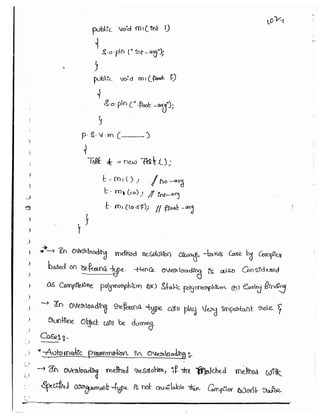 public void m1(int i)
{
S.o.pln ("int-arg");
}
public void m1(float f)
{
S.o.pln ("float-arg");
}
p s v m (———)
{
Test t = new Test();
t.m1(); // no-arg
t.m1(10); // int-arg
t.m1(10.5f); // float-arg
}
}
*→ In overloading method resolution always takes care by compiler
based on reference-type. Hence overloading is also considered
as Compiletime polymorphism (or) Static polymorphism (or) Early Binding
→ In overloading reference type will play very important role &
Runtime object will be dummy.
Case1:-
*Automatic promotion in overloading:-
→ In overloading method resolution, if the matched method with
specified argument-type is not available then compiler won't raise